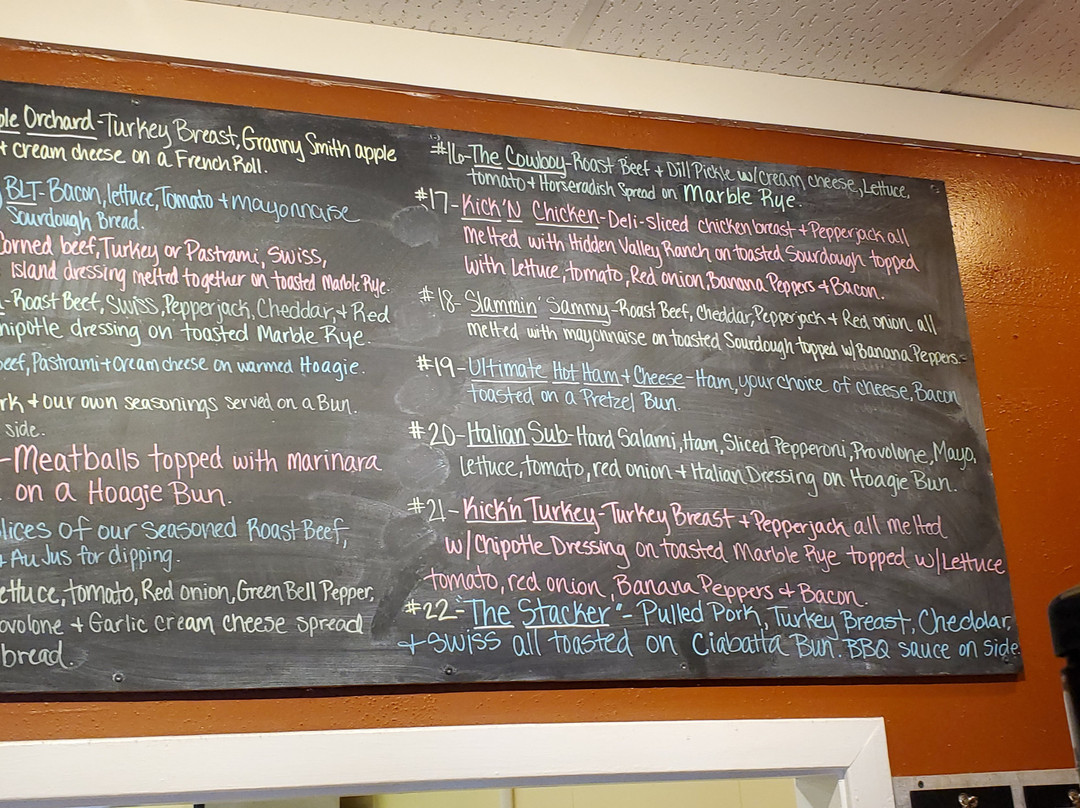 Orchard-Turkey Breast, Granny Smith apple
+ cream cheese on a French Roll.
BLT-Bacon, lettuce, Tomato + mayonnaise
Sourdough Bread.
Corned beef, Turkey or Pastrami, Swiss,
Island dressing melted together on toasted Marble Rye.
-Roast Beef, Swiss, Pepperjack, Cheddar, + Red
dressing on toasted Marble Rye.
Pastrami + cream cheese on warmed Hoagie.
+ our own seasonings served on a Bun.
side.
-Meatballs topped with marinara
on a Hoagie Bun.
of our seasoned Roast Beef,
+ Au Jus for dipping.
tomato, Red onion, Green Bell Pepper,
+ Garlic cream cheese spread
bread.
#16-The Cowboy-Roast Beef + Dill Pickle w/cream cheese, Lettuce,
tomato + Horseradish Spread on Marble Rye.
#17-Kick'N Chicken-Deli-sliced chicken breast + Pepperjack all
melted with Hidden Valley Ranch on toasted Sourdough topped
with Lettuce, tomato, Red onion, Banana Peppers + Bacon.
#18-Slammin' Sammy-Roast Beef, cheddar, Pepperjack + Red onion all
melted with mayonnaise on toasted Sourdough topped w/Banana Peppers.
#19-Ultimate Hot Ham + Cheese-Ham, your choice of cheese, Bacon
toasted on a Pretzel Bun.
#20-Italian Sub-Hard Salami, Ham, Sliced Pepperoni, Provolone, Mayo,
lettuce, tomato, red onion + Italian Dressing on Hoagie Bun.
#21-Kick'n Turkey-Turkey Breast + Pepperjack all melted
w/Chipotle Dressing on toasted Marble Rye topped w/Lettuce
tomato, red onion, Banana Peppers + Bacon.
#22-"The Stacker"- Pulled Pork, Turkey Breast, Cheddar,
+ Swiss all toasted on Ciabatta Bun. BBQ sauce on side.